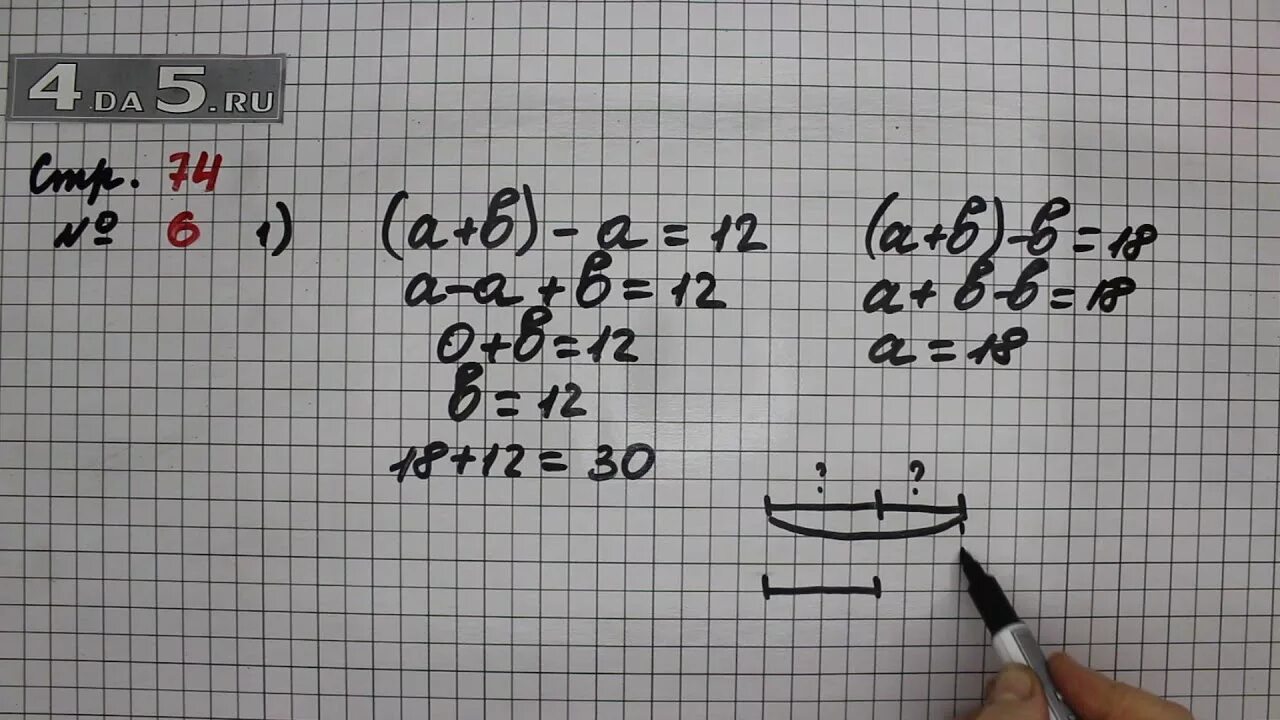 4DA5.RU
Стр. 74
№ 6 1)
(а+в)-а=12
а-а+в=12
0+в=12
в=12
18+12=30
(а+в)-в=18
а+в-в=18
а=18
? ?